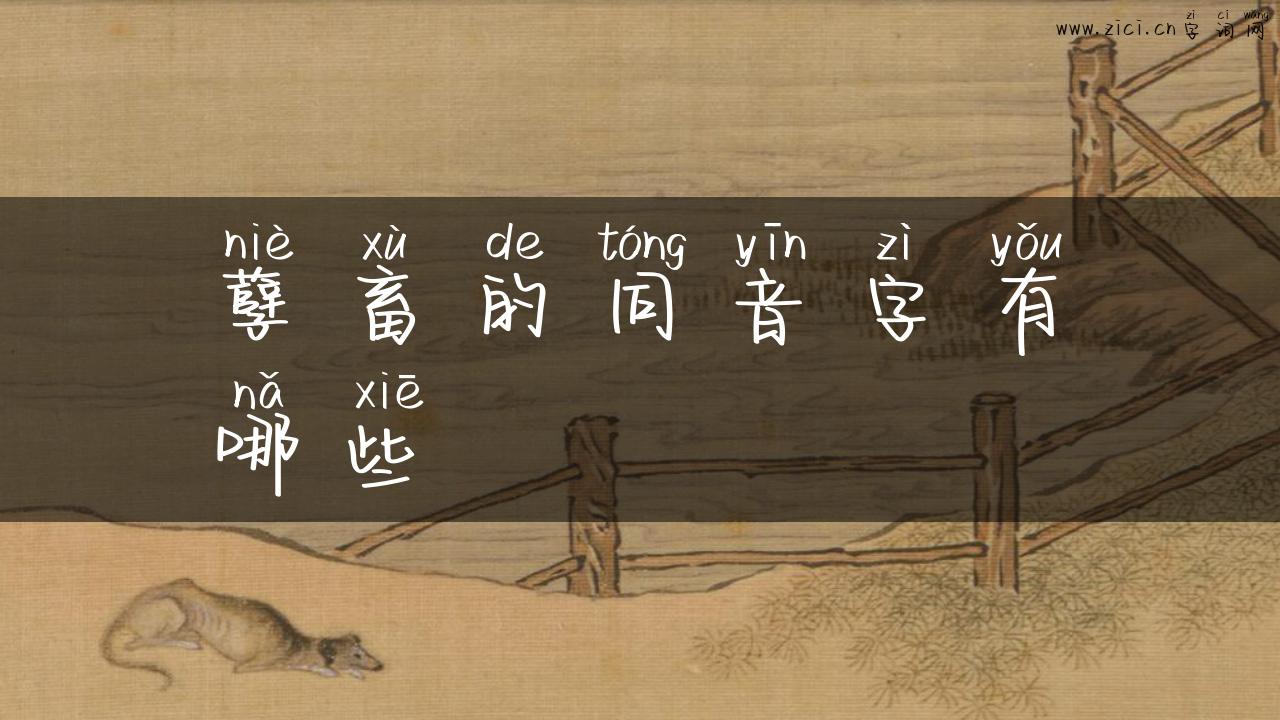 zì cí wǎng
www.zici.cn 字词网
niè xù de tóng yīn zì yǒu
孽畜的同音字有
nǎ xiē
哪些